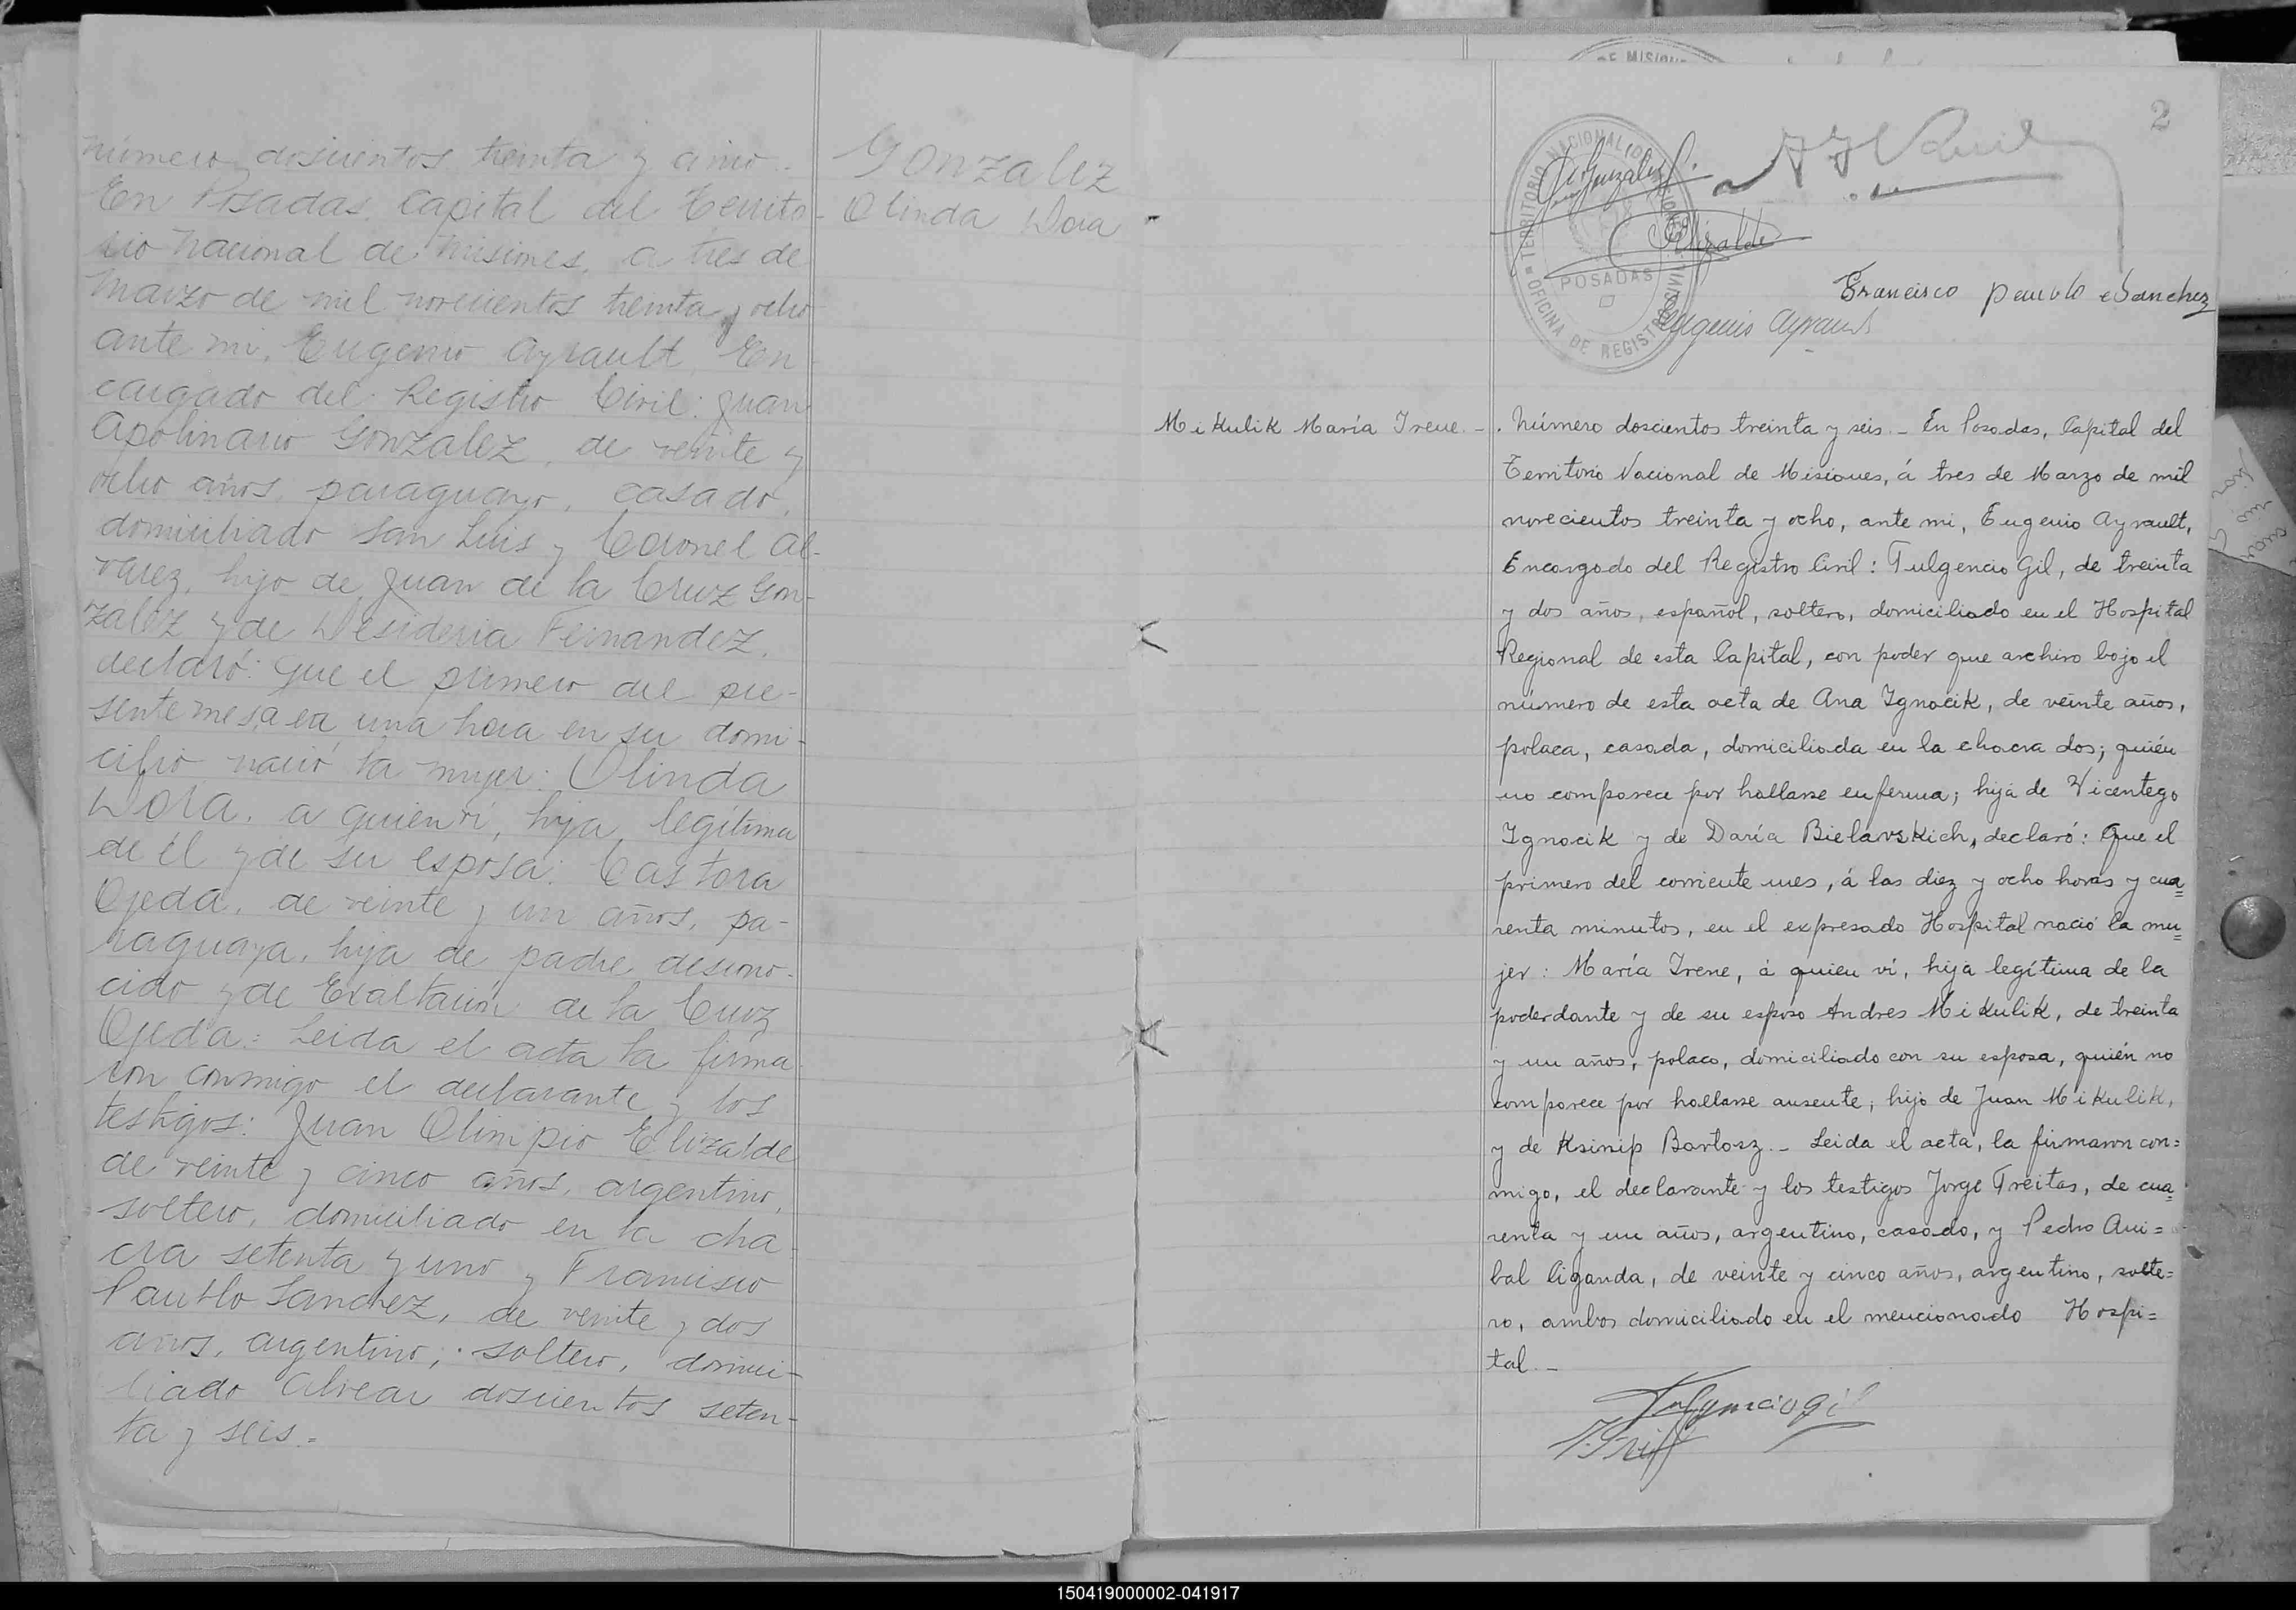 Número doscientos treinta y cinco.
En Posadas, Capital del Territo-
rio Nacional de Misiones, a tres de
Marzo de mil novecientos treinta y ocho
ante mi, Eugenio Ayrault, En-
cargado del Registro Civil: Juan
Apolinario Gonzalez, de veinte y
ocho años, paraguayo, casado,
domiciliado San Luis y Coronel Al-
varez, hijo de Juan de la Cruz Gon-
zalez y de Desideria Fernandez,
declaró: Que el primero del pre-
sente mes, a la una hora en su domi-
cilio nació la mujer: Olinda
Dora, a quien vi, hija legítima
de él y de su esposa: Castora
Ojeda, de veinte y un años, pa-
raguaya, hija de padre descono-
cido y de Exaltación de la Cruz
Ojeda = Leida el acta la firma-
ron conmigo el declarante y los
testigos: Juan Olimpio Elizalde
de veinte y cinco años, argentino,
soltero, domiciliado en la cha-
cra setenta y uno y Francisco
Paublo Sanchez, de veinte y dos
años, argentino, soltero, domici-
liado Alvear doscientos seten-
ta y seis.=
Gonzalez
Olinda Dora
2
DE MISIONES
TERRITORIO NACIONAL DE MISIONES
OFICINA DE REGISTRO CIVIL
POSADAS
Francisco Paublo Sanchez
Eugenio Ayrault
Mikulik María Irene.-
Número doscientos treinta y seis.- En Posadas, Capital del
Territorio Nacional de Misiones, á tres de Marzo de mil
novecientos treinta y ocho, ante mi, Eugenio Ayrault,
Encargado del Registro Civil: Fulgencio Gil, de treinta
y dos años, español, soltero, domiciliado en el Hospital
Regional de esta Capital, con poder que archivo bajo el
número de esta acta de Ana Ignacik, de veinte años,
polaca, casada, domiciliada en la chacra dos; quién
no comparece por hallarse enferma; hija de Vicentego
Ignacik y de Daría Bielavskich, declaró: Que el
primero del corriente mes, á las diez y ocho horas y cua=
renta minutos, en el expresado Hospital nació la mu=
jer: María Irene, á quien ví, hija legítima de la
poderdante y de su esposo Andres Mikulik, de treinta
y un años, polaco, domiciliado con su esposa, quién no
comparece por hallarse ausente; hijo de Juan Mikulik,
y de Ksinip Bartosz.- Leida el acta, la firmaron con=
migo, el declarante y los testigos Jorge Freitas, de cua=
renta y un años, argentino, casado, y Pedro Ani=
bal Ciganda, de veinte y cinco años, argentino, solte=
ro, ambos domiciliado en el mencionado Hospi=
tal.-
Fulgencio Gil
150419000002-041917